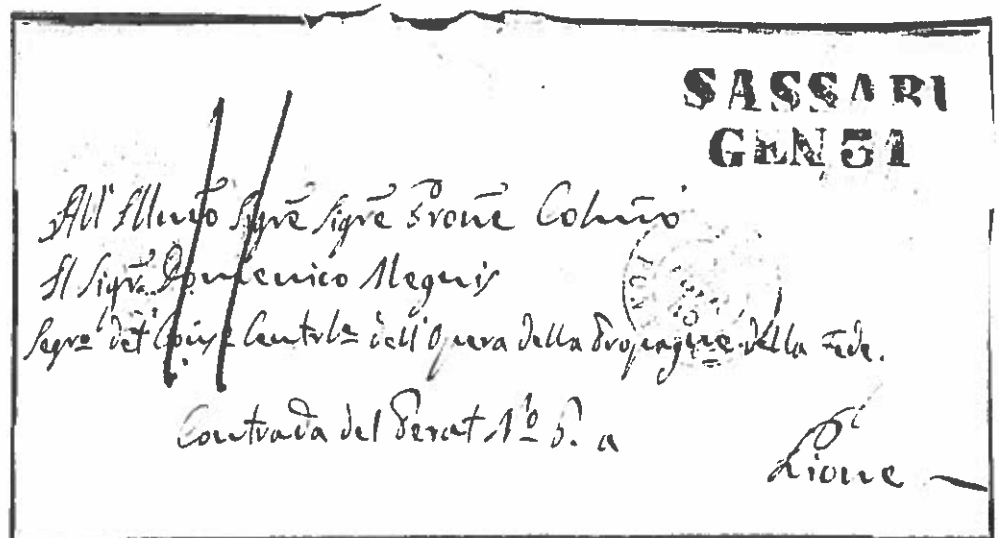 SASSARI
GEN 51
All' Illmo Sigre Sigre Prone Colmo
Il Sigre Domenico Meynis
Segro del Consº Centrle dell'Opera della Propagne della Fede.
Contrada del Perat Nº 6. a
Lione